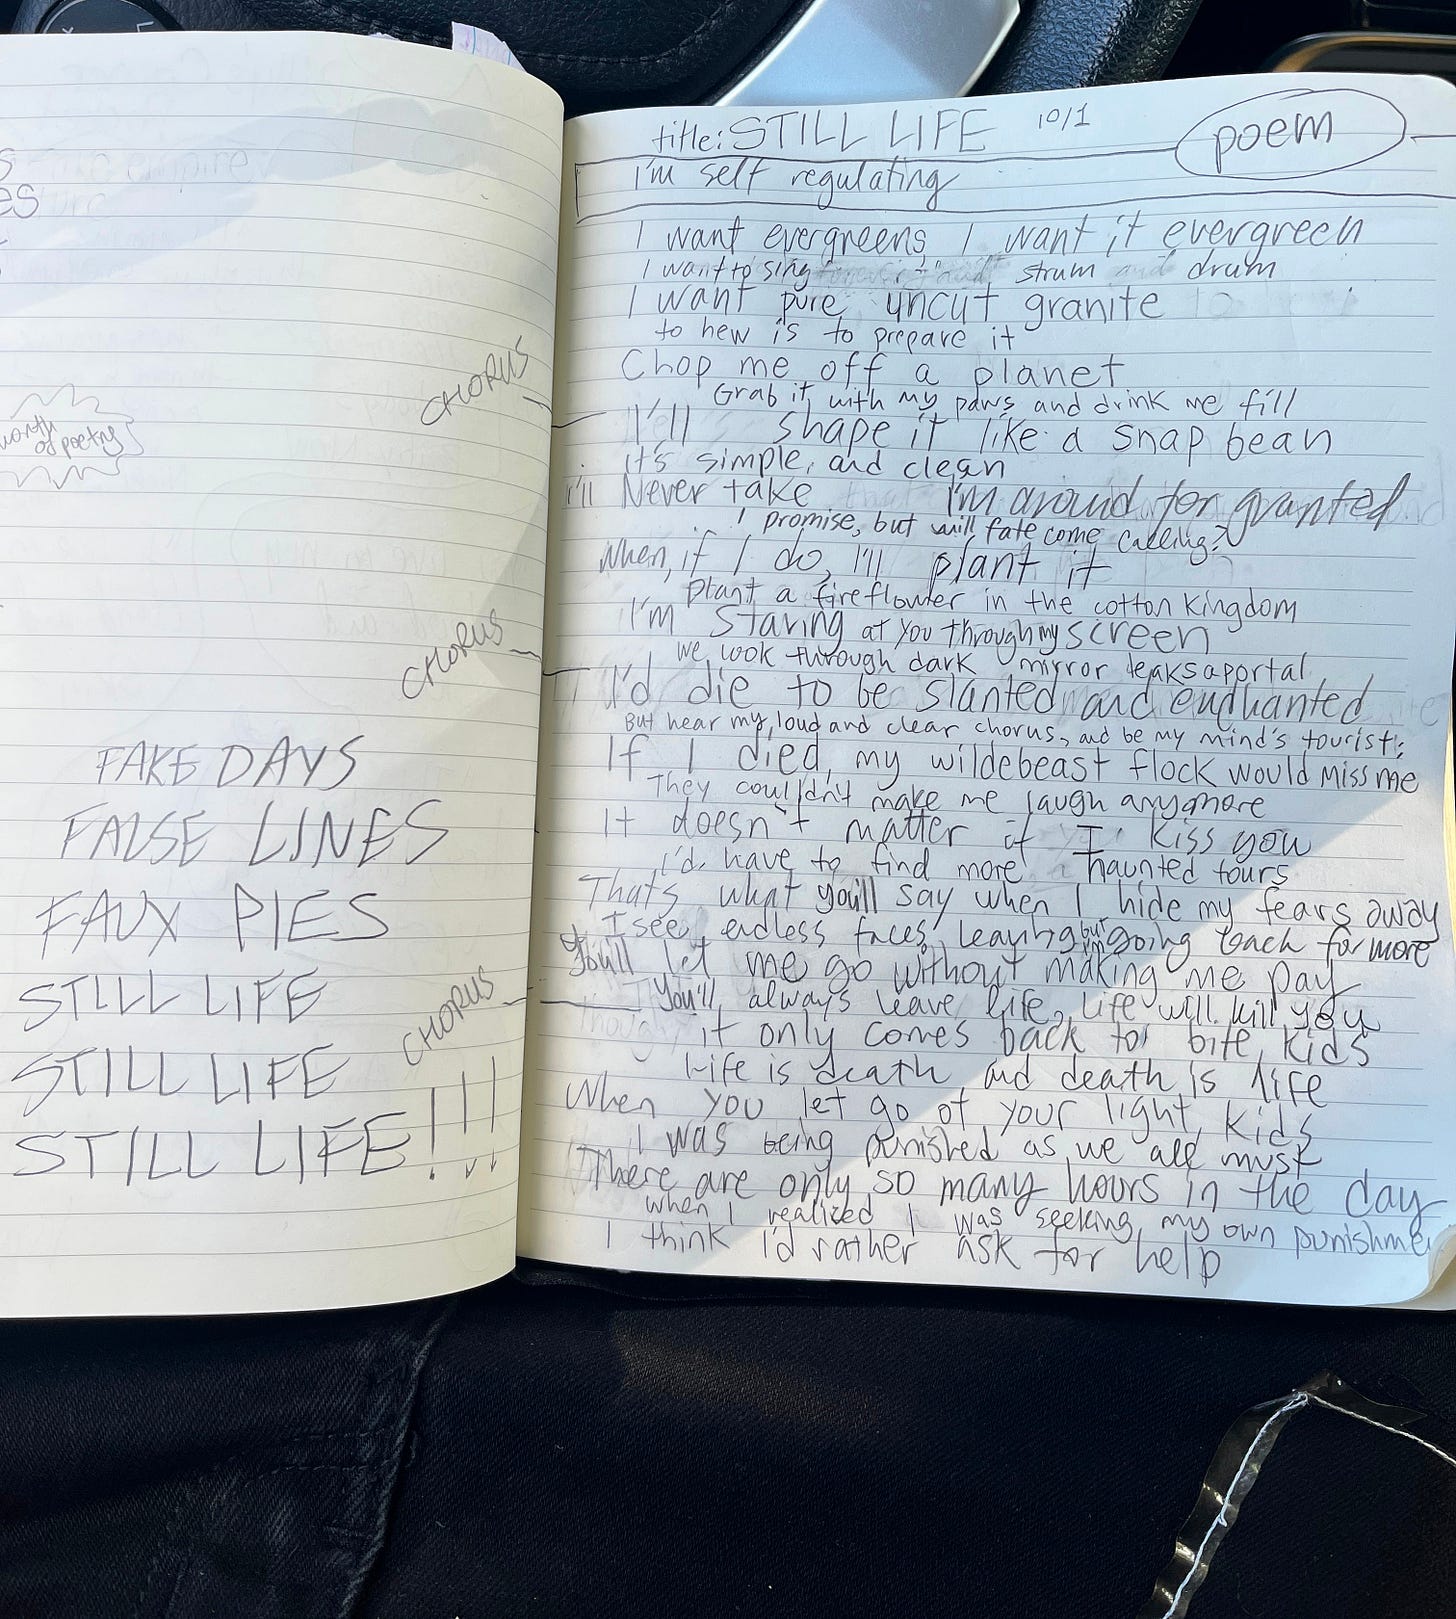 es
CHORUS
worth
of poetry
CHORUS
FAKE DAYS
FALSE LINES
FAUX PIES
STILL LIFE
CHORUS
STILL LIFE
STILL LIFE!!!
title: STILL LIFE 10/1 poem
I'm self regulating
I want evergreens, I want it evergreen
I want to sing strum and drum
I want pure uncut granite
to hew is to prepare it
Chop me off a planet
Grab it with my paws and drink me fill
I'll shape it like a snap bean
it's simple, and clean
I'll Never take I'm around for granted
I promise, but will fate come calling?
When, if I do, I'll plant it
Plant a fireflower in the cotton kingdom
I'm staring at you through my screen
we look through dark mirror leaks a portal
I'd die to be slanted and enchanted
But hear my, loud and clear chorus, and be my mind's tourist;
If I died, my wildebeast flock would miss me
They couldn't make me laugh anymore
It doesn't matter if I kiss you
I'd have to find more haunted tours
That's what you'll say when I hide my fears away
I see endless faces leaving but I'm going back for more
You'll let me go without making me pay
You'll always leave life, life will kill you
it only comes back to bite, kids
Life is death and death is life
When you let go of your light, kids
I was being punished as we all must
There are only so many hours in the day
when I realized I was seeking my own punishme
I think I'd rather ask for help